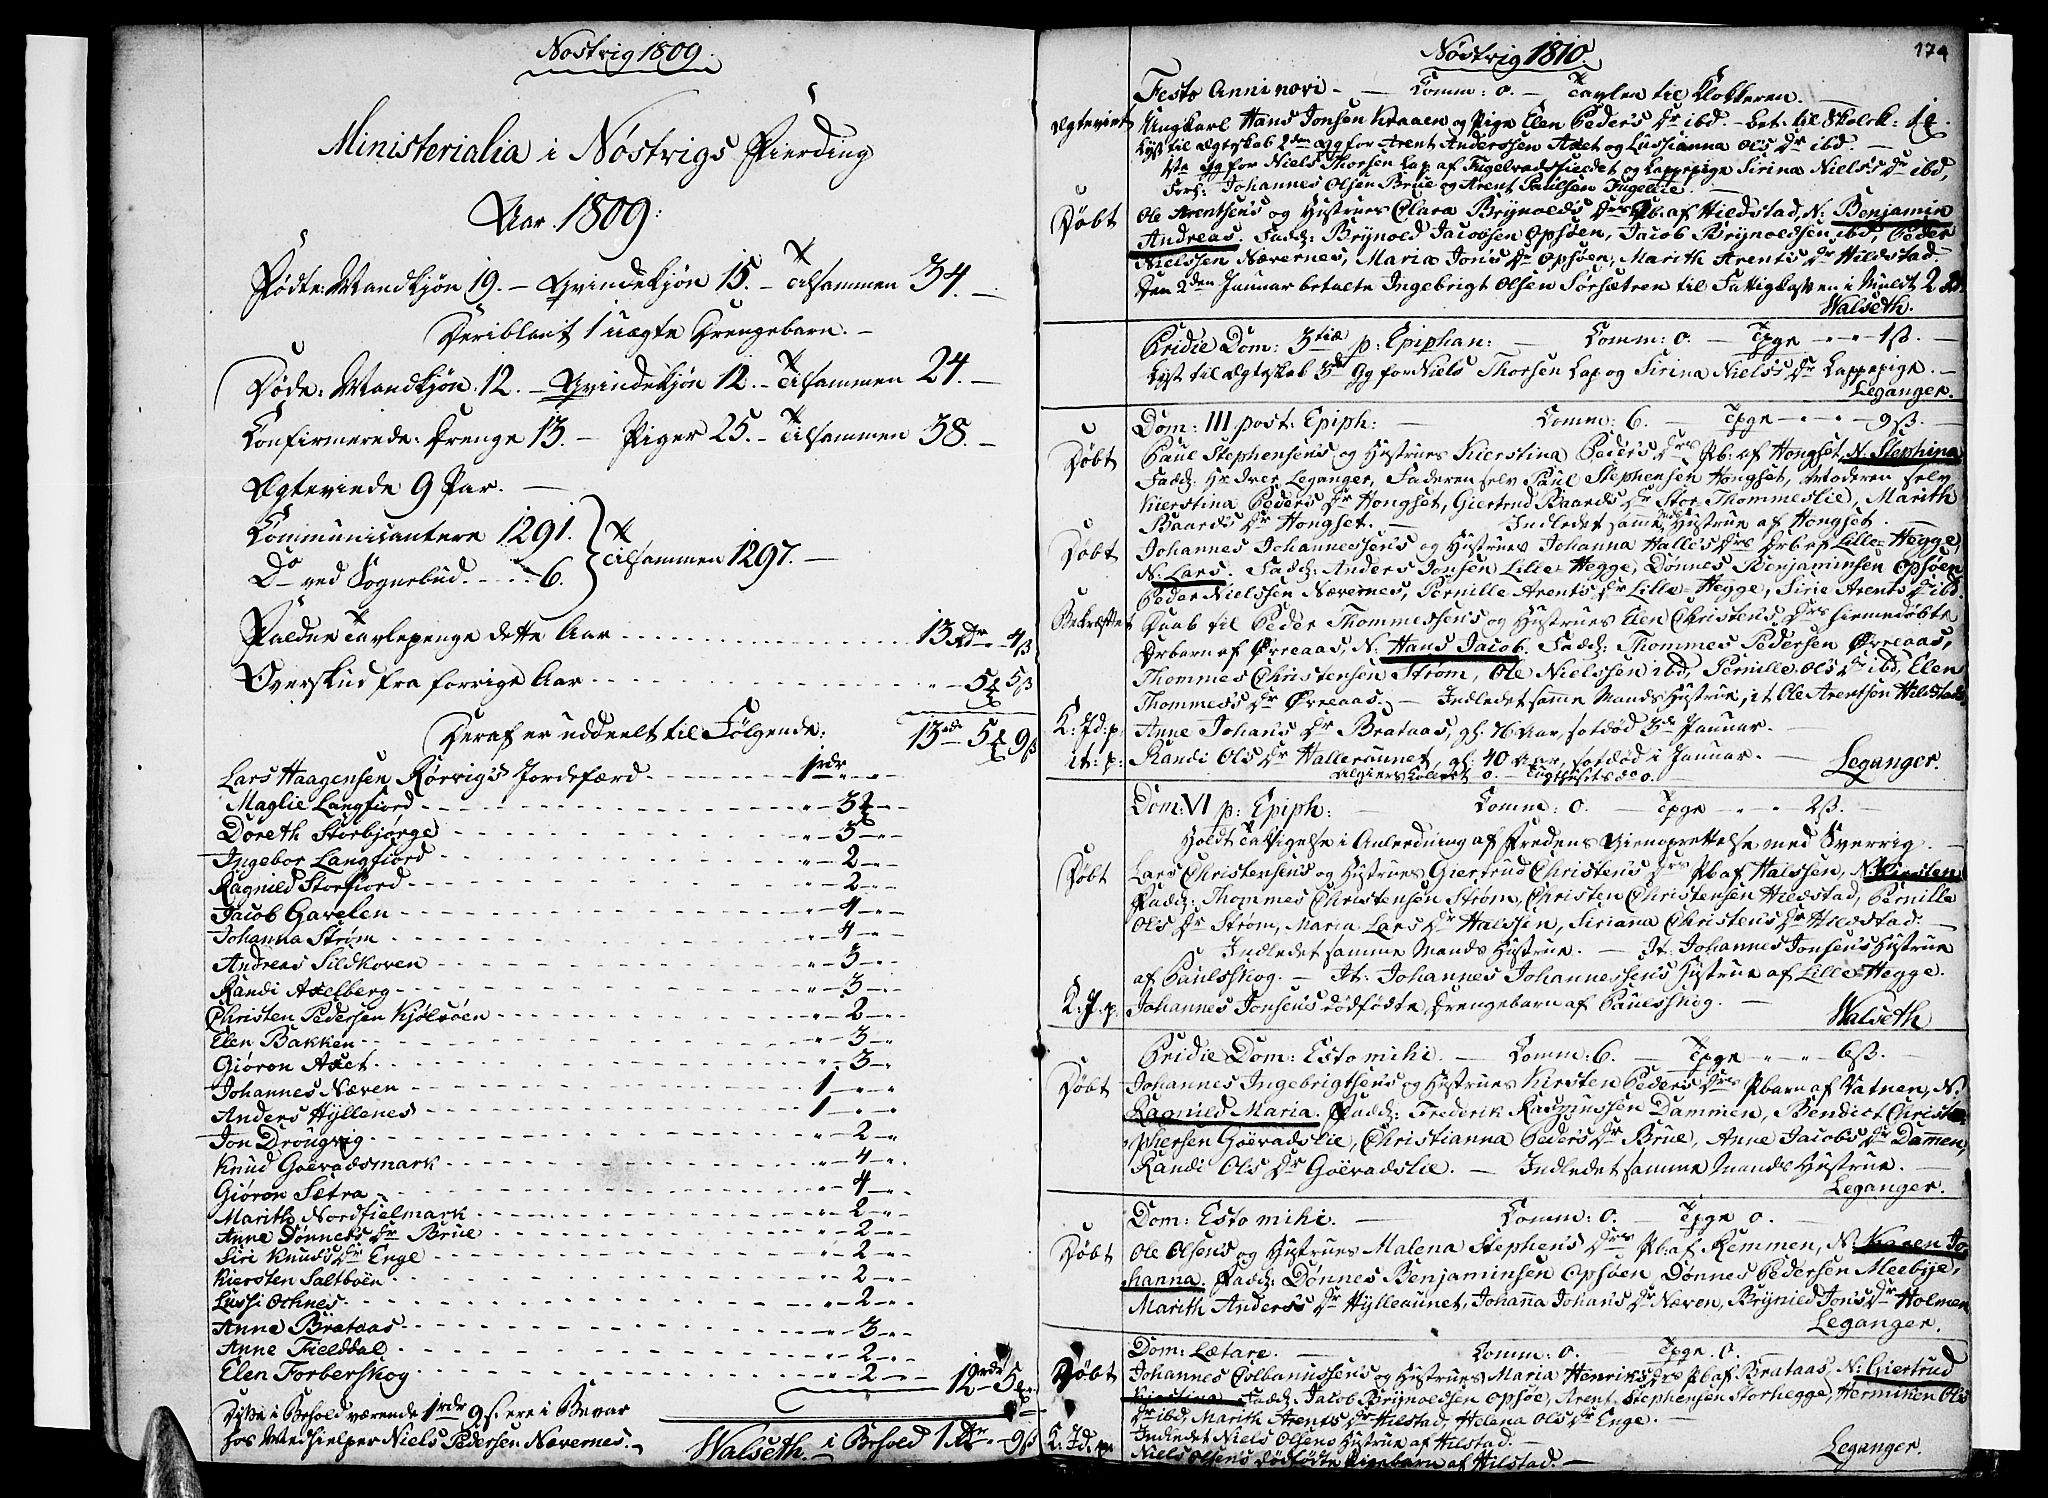 Nøstvig 1809.
Ministerialia i Nøstvigs Fierding
Aar 1809:
Fødte: Mandkjøn 19. – Qvindekjøn 15. – Tilsammen 34. –
Deriblant 1 uægte Drengebarn. –
Døde: Mandkjøn 12. – Qvindekjøn 12. – Tilsammen 24. –
Confirmerede: Drenge 13. – Piger 25. – Tilsammen 38. –
Ægteviede 9 Par. –
Communicantere 1291.
Do ved Sognebud. 6.
Tilsammen 1297. –
Faldne Tavlepenge dette Aar 13 Rdr 4 ß
Overskud fra forrige Aar 5 5ß
13 5 9ß
Deraf er uddeelt til Følgende:
Lars Haagensen Rørvigs Jordefærd 1 rdr
Maglie Langfiord 3
Doreth Storbjørge 3
Ingebor Langfiord 2
Ragnild Storfiord 2
Jacob Gavelen 4
Johanna Strøm 4
Andreas Sildkoven 3
Randi Axelberg 3
Christen Pedersen Kjølsøen 2
Elen Bakken 3
Giøron Axet 3
Johannes Næven 1
Anders Hyllenes 1
Jon Drougvig 2
Knud Goëvadsmark 4
Giøron Sætra 4
Marith Nordfielmark 2
Anne Dønnes Dr Brue 2
Siri Knuds Dr Enge 2
Kiersten Saltbøen 2
Lussi Othnes 2
Anne Brataas 3
Anne Fielddal 2
Elen Forberskog 2
12 rdr 5
Disse i Behold værende 1 rdr 9 s. ere i Bevar
hos Medhielper Niels Pedersen Nævernes.
Walseth. i Behold 1 Rdr 9ß
174
Nøstvig 1810.
Festo Anni novi – Comm: 0. – Tavlen til Klokkeren.
Ægteviet Ungkarl Hans Jonsen Kraaen og Pige Elen Peder's Dr ibd. – bet: til Skolek:
Lyst til Ægteskab 2den Gg for Arent Anderssen Axet og Lussianna Ols Dr ibd. –
1ste Gg for Niels Thorsen Lap af Fugelvadsfieldet og Lappepige Sirina Niels's Dr ibd,
Forl: Johannes Olsen Brue og Arent Paulsen Fugellie. –
Døbt Ole Arentsen's og Hustrues Clara Brynold's Drs Pb. af Hildstad, N: Benjamin
Andreas. Fadd: Brynold Jacobsen Opsøen, Jacob Brynoldsen ibd, Peder
Nielssen Nævernes, Maria Jons Dr Opsøen, Marith Arents Dr Hildstad.
Den 2den Januar betalte Ingebrigt Olsen Sørsætren til Fattigkassen i Mulct 2
Walseth.
Pridie Dom: 3tiæ p: Epiphan: – Comm: 0. – Tpge 1ß. –
Lyst til Ægteskab 3de Gg for Niels Thorsen Lap og Sirina Niels's Dr Lappepige. –
Leganger.
Dom: III post: Epiph: – Comm: 6. – Tpge 9ß. –
Døbt Paul Stephensen's og Hustrues Kierstina Peder's Drs Pb: af Hongset, N. Stephina
Fadd: Hr Iver Leganger, Faderen selv Paul Stephensen Hongset, Moderen selv
Kierstina Peders Dr Hongset, Giertrud Baards Dr Stor Thommeslie, Marith
Baards Dr Hongset. – Indledet samme Mands Hustrue af Hongset. –
Døbt Johannes Johannessen's og Hustrues Johanna Halle's Drs Drb af Lille-Hegge,
N: Lars. Fadd: Anders Jonsen Lille-Hegge, Dønnes Benjaminsen Opsøen
Peder Nielssen Nævernes, Pernille Arents Dr Lille-Hegge, Sirie Arents Dr ibd.
Bekræftet Daab til Peder Thommessen's og Hustrues Elen Christen's Drs hiemmedøbte
Drbarn af Ørreaas, N: Hans Jacob. Fadd: Thommes Pedersen Ørreaas,
Thommes Christensen Strøm, Ole Nielssen ibd, Pernille Ols Dr ibd, Elen
Thommess Dr Ørreaas. – Indledet samme Mands Hustrue, it Ole Arentsen Hildstads,
K: Jd: p. Anne Johan's Dr Brataas, gl. 76 Aar, sotdød 3de Januar. –
it: p. Randi Ols Dr Halleraunet, gl: 40 Aar, sotdød i Januar. – Leganger.
Algierscollect 0. – Tugthusets do 0.
Dom: VI p: Epiph: – Comm: 0. – Tpge 2ß. –
Holdt Taksigelse i Anledning af Fredens Gienoprettelse med Sverrig. –
Døbt Lars Christensen's og Hustrues Giertrud Christen's Drs Pb af Halssen, N: Kirsten
Fadd: Thommes Christensen Strøm, Christen Christensen Hildstad, Pernille
Ols Dr Strøm, Maria Lars Dr Halssen, Siriana Christens Dr Hildstad. –
Indledet samme Mands Hustrue. – It: Johannes Jonsen's Hustrue
af Paulsskog. – It: Johannes Johannessen's Hustrue af Lille-Hegge.
K: J. p. Johannes Jonsens dødfødte Drengebarn af Paulsskog. – Walseth
Pridie Dom: Esto mihi. – Comm: 6. – Tpge 6ß. –
Døbt Johannes Ingebrigtsen's og Hustrues Kirsten Peders Drs Pbarn af Vatnen, N:
Ragnild Maria. Fadd: Frederik Rasmussen Dammen, Bendict Christo-
phersen Goëvadslie, Christianna Peders Dr Brue, Anne Jacobs Dr Dammen,
Randi Ols Dr Goëvadslie. – Indledet samme Mands Hustrue. –
Leganger.
Dom: Esto mihi. – Comm: 0. – Tpge 0. –
Døbt Ole Olsen's og Hustrues Malena Stephen's Drs Pb. af Remmen, N: Karen Jo-
hanna. Fadd: Dønnes Benjaminsen Opsøen, Dønnes Pedersen Meebye,
Marith Anders's Dr Hylleaunet, Johanna Johan's Dr Næven, Brynild Jon's Dr Holmen
Leganger.
Dom: Lætare. – Comm: 0. – Tpge: 0. –
Døbt Johannes Colbanussen's og Hustrues Maria Henriks Drs Pb af Brataas, N: Giertrud
Kierstina. Fadd: Jacob Brynoldsen Opsøe, Arent Stephensen Storhegge, Hermiken Ols
Dr ibd, Marith Arents Dr Hilstad, Helena Ols Dr Enge. –
Indledet Niels Olsens Hustrue af Hilstad. –
K. Jd. p. Niels Olsens dødfødte Pigebarn af Hilstad. – Leganger.